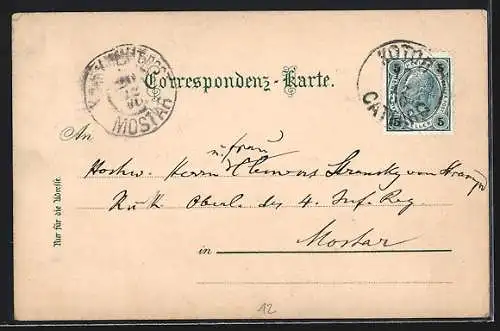 MOSTAR
Correspondenz-Karte.
KOTOR
CATTARO
5 5
An
u. frau
Hochw. Herrn Clemens
K u K Oberl. des 4. Inf. Reg.
in Mostar
Nur für die Adresse.
12